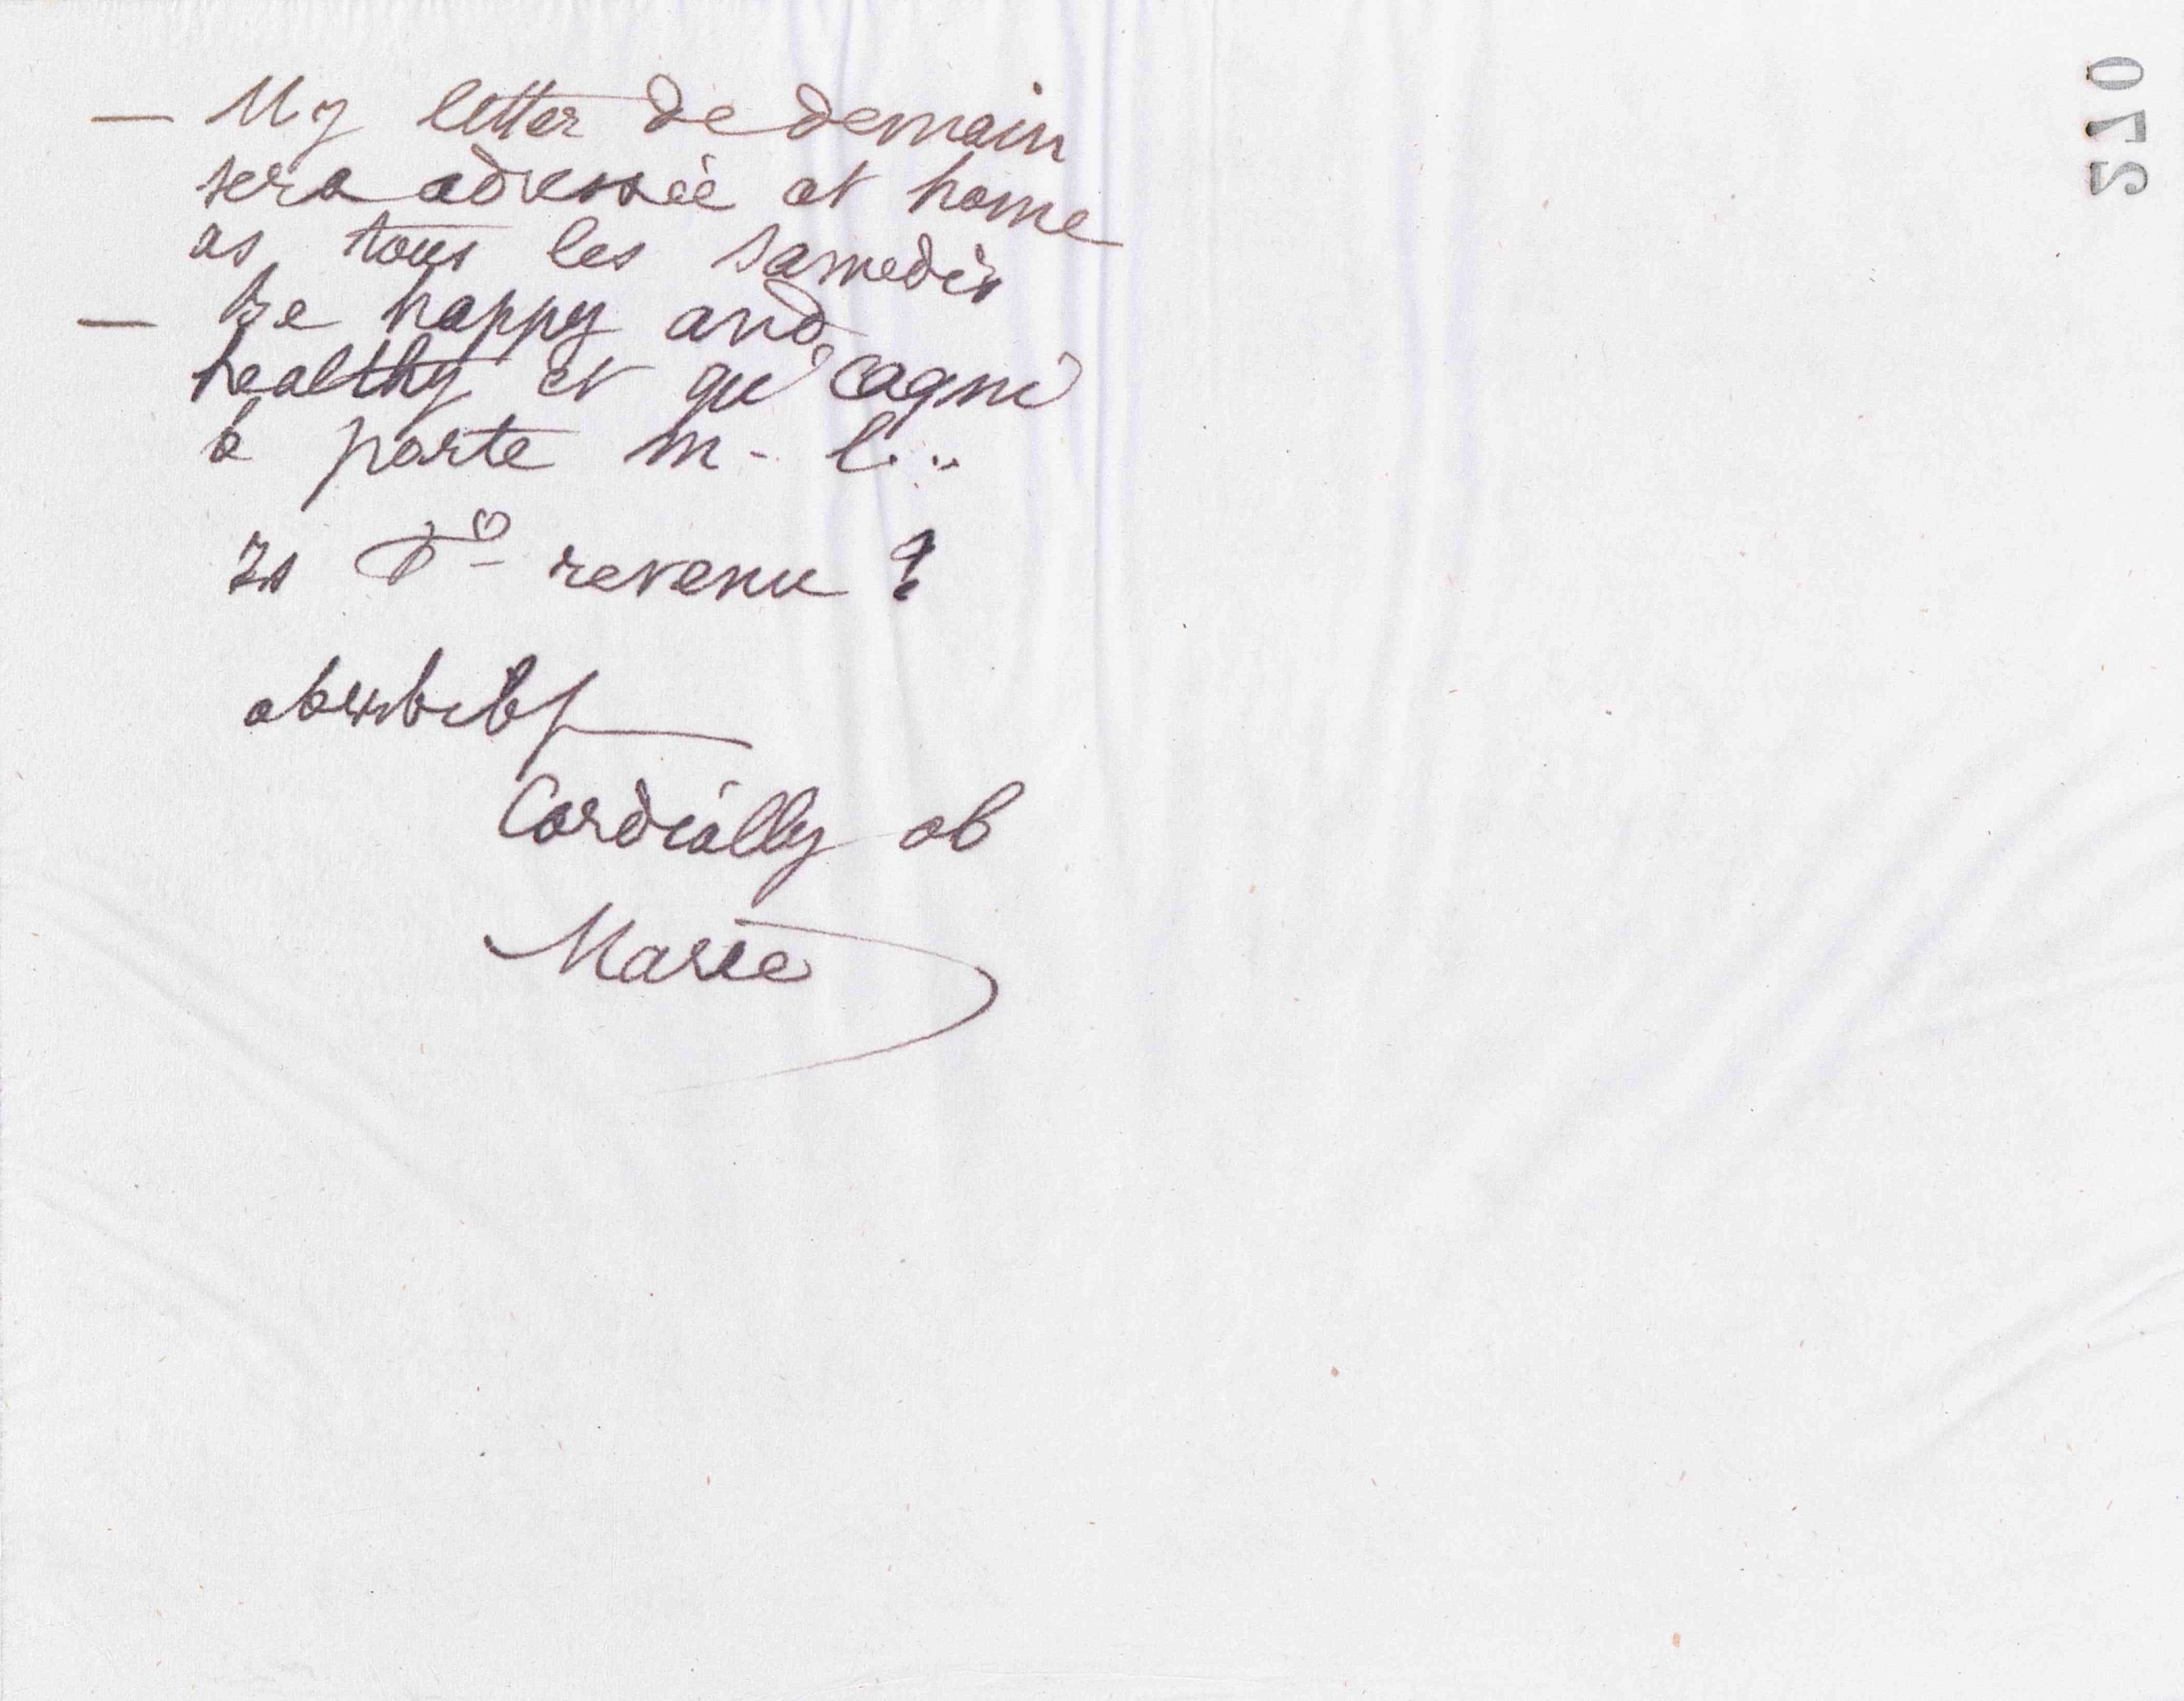 — My letter de demain
sera adressée at home
as tous les samedis
— Be happy and
healthy et qu'Cagni
à parte m- l...
Is revenu ?
Cordially ob
Marie
520